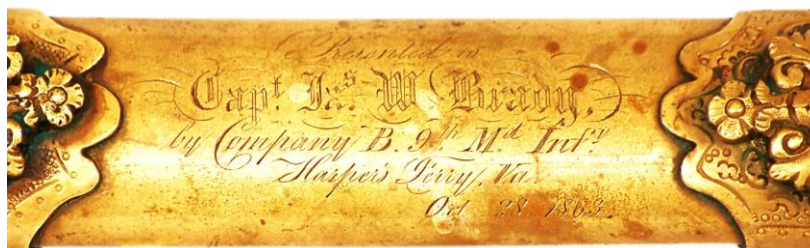 Presented to
Capt Jas W Brady,
by Company B. 9th Md Infy
Harper's Ferry, Va
Oct 28 1863.